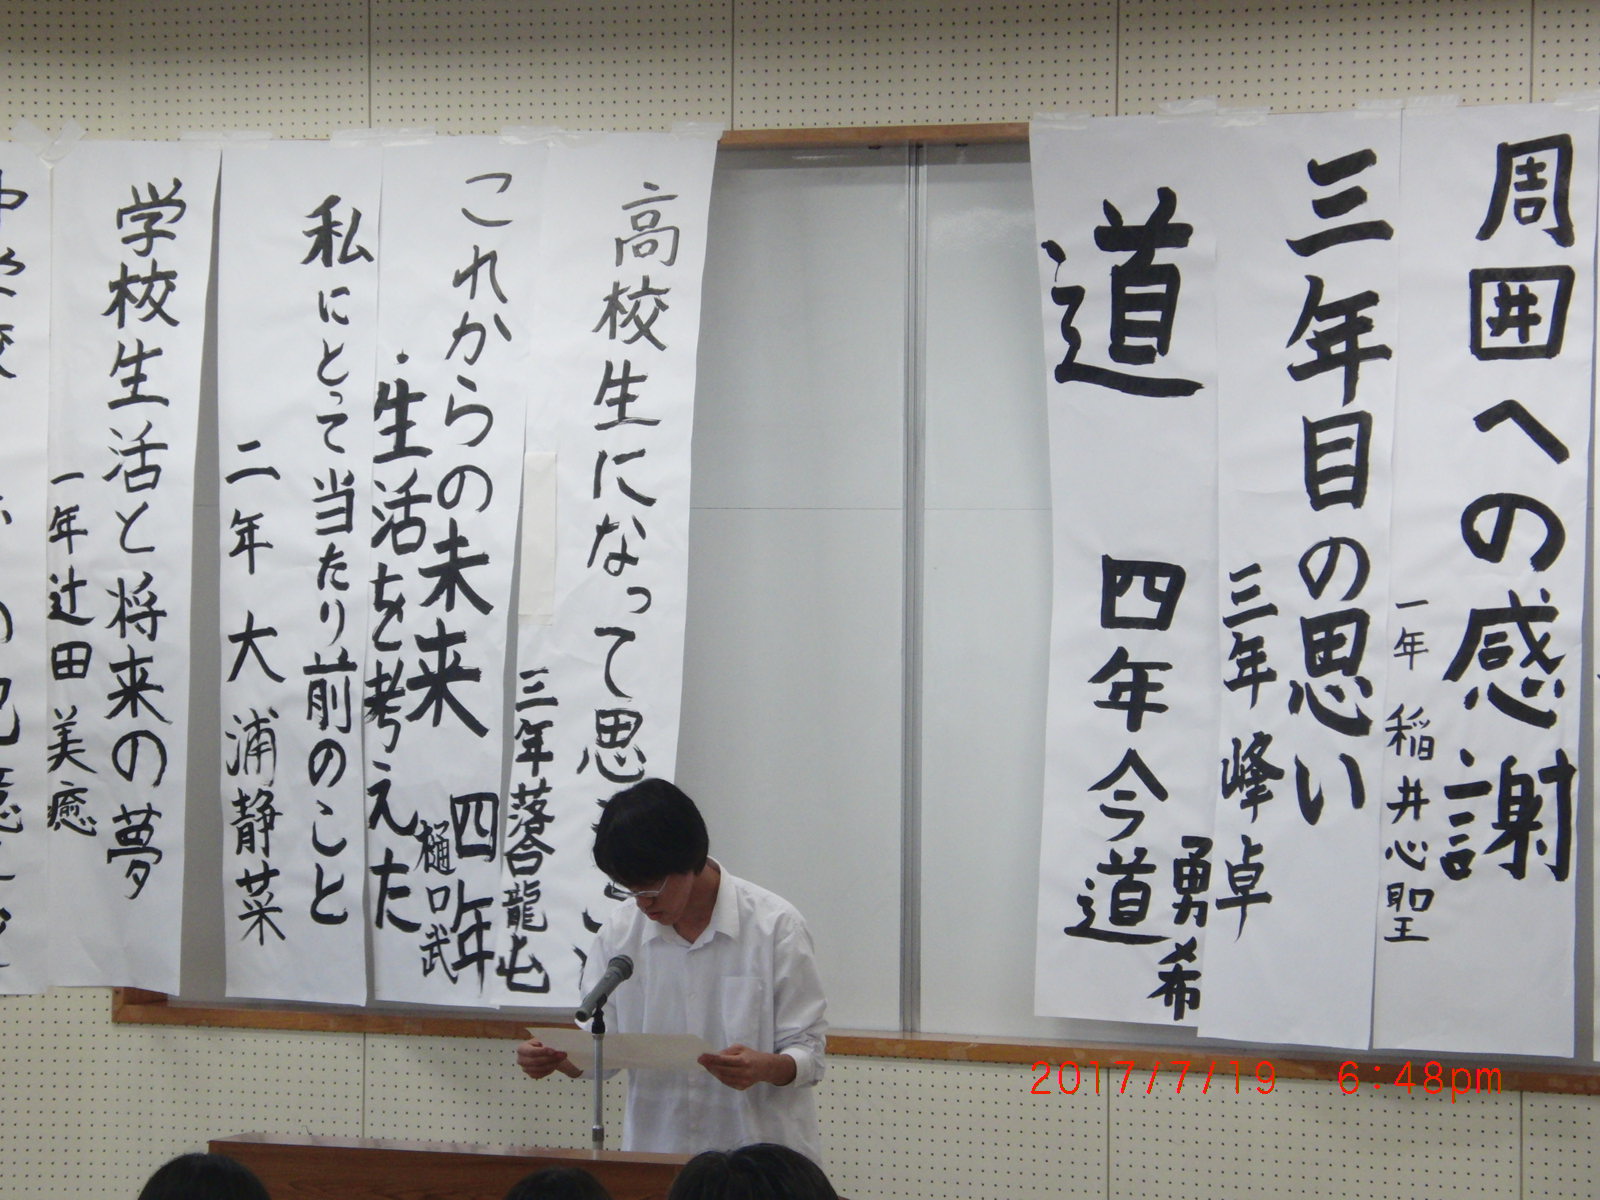 周囲への感謝
一年 稲井心聖
三年目の思い
三年 峰 卓
道 四年 今道
勇希
高校生になって思
三年 落合龍
これからの未来 四年
・生活を考えた
樋口武
私にとって当たり前のこと
二年 大浦静菜
学校生活と将来の夢
一年 辻田美癒
2017/7/19 6:48pm